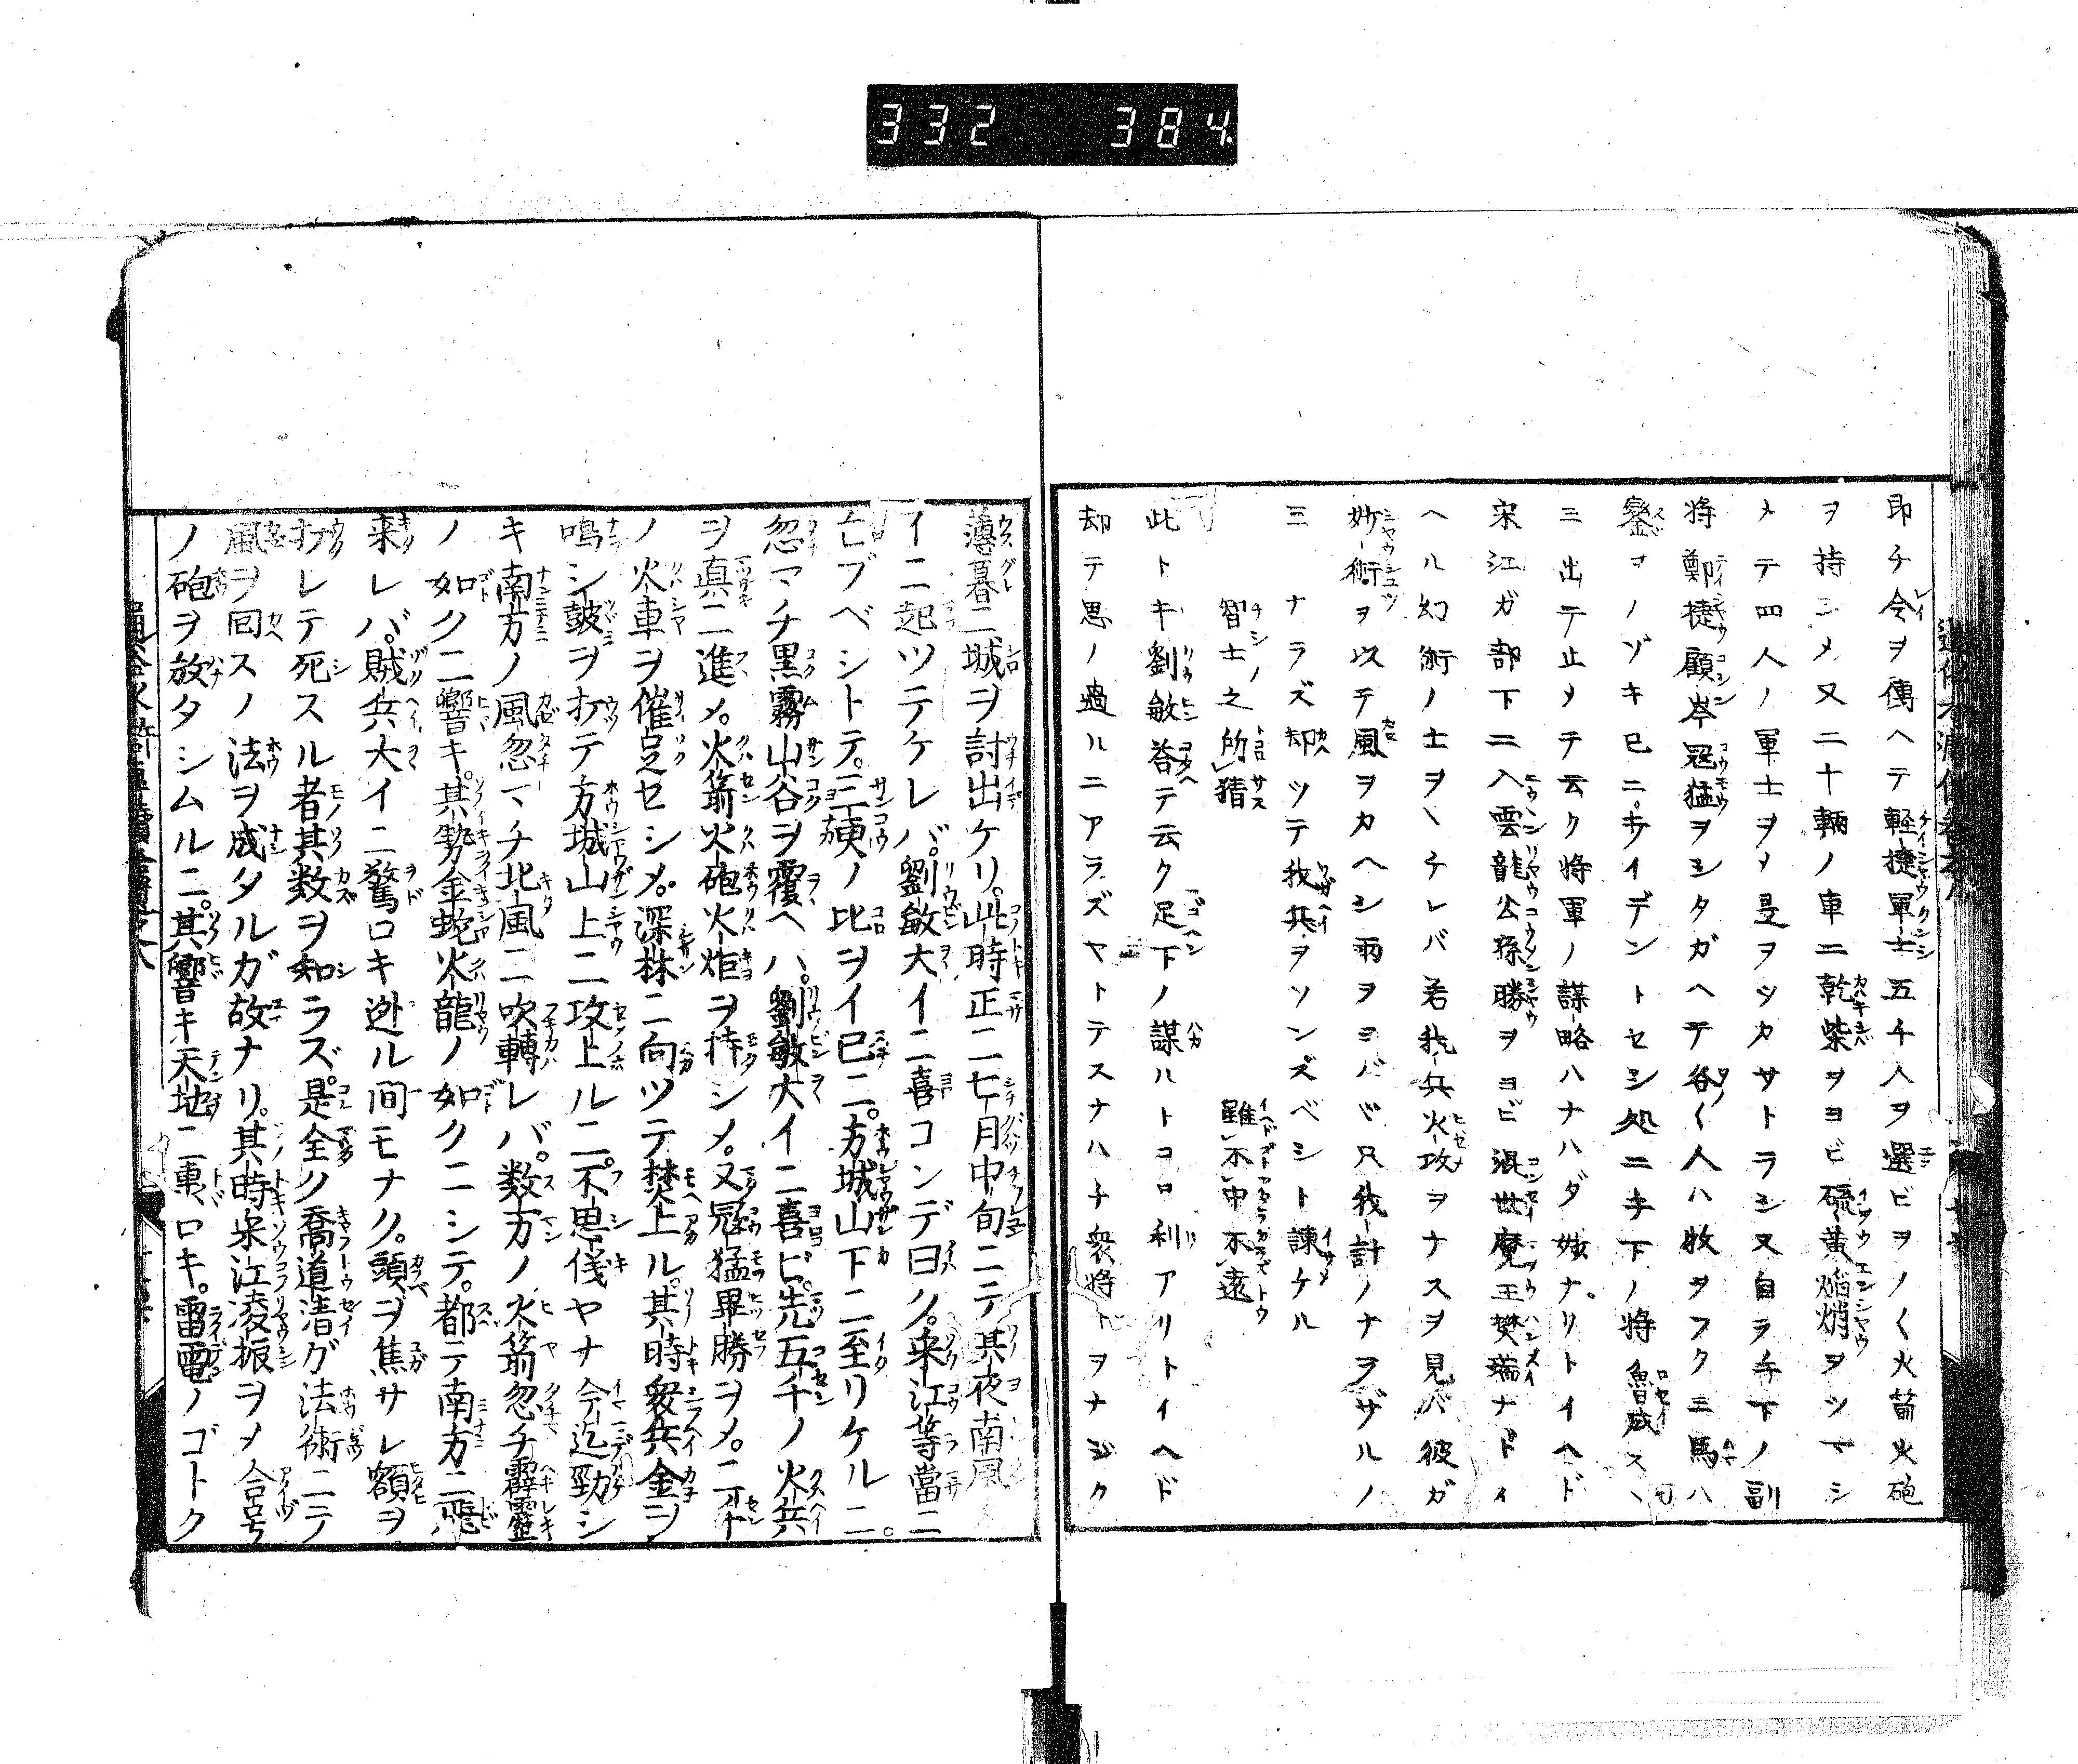 332 384
即チ令ヲ傳ヘテ軽捷軍士五千人ヲ選ビヲノ〱火箭火砲
ヲ持シメ又二十輛ノ車ニ乾柴ヲヨビ硫黄焔焇ヲツマシ
メテ四人ノ軍士ヲメ是ヲツカサトラシ又自ラ手下ノ副
將鄭捷顧岑冦猛ヲシタガヘテ各〱人ハ牧ヲフクミ馬ハ
鑾ヲノゾキ已ニ デントセシ処ニ手下ノ將魯成スヽ
ミ出テ止メテ云ク將軍ノ謀略ハナハダ妙ナリトイヘド
宋江ガ部下ニ入雲龍公孫勝ヲヨビ混世魔王樊瑞ナドイ
ヘル幻術ノ士ヲヽチレバ若我兵火攻ヲナスヲ見バ彼ガ
妙術ヲ以テ風ヲカヘシ雨ヲヨバヾ只我計ノナヲザルノ
ミナラズ却ツテ我兵ヲソンズベシト諫ケル
智士之所猜 雖不中不遠
此トキ劉敏答テ云ク足下ノ謀ルトコロ利アリトイヘド
却テ思ノ過ルニアラズヤトテスナハチ衆將トヲナジク
薄暮ニ城ヲ討出ケリ此時正ニ七月中旬ニテ其夜南風
イニ起ツテケレバ劉敏大イニ喜コンデ曰ク宋江等當ニ
亡ブベシトテ三更ノ比ヲイ已ニ方城山下ニ至リケルニ
忽マチ黒霧山谷ヲ覆ヘハ劉敏大イニ喜ビ先五千ノ火兵
ヲ真ニ進メ火箭火砲火炬ヲ持シメ又冦猛畢勝ヲメ二十
ノ火車ヲ催促セシメ深林ニ向ツテ焚上ル其時衆兵金ヲ
鳴シ鼓ヲ打テ方城山上ニ攻上ルニ不思儀ヤナ今迄勁シ
キ南方ノ風忽マチ北風ニ吹轉レバ数万ノ火箭忽チ霹靂
ノ如クニ響キ其勢金蛇火龍ノ如クニシテ都テ南方ニ飛
来レバ賊兵大イニ驚ロキ迯ル間モナク頭ヲ焦サレ額ヲ
打レテ死スル者其数ヲ知ラズ是全ク喬道清ガ法術ニテ
風ヲ回スノ法ヲ成タルガ故ナリ其時宋江凌振ヲメ合号
ノ砲ヲ放タシムルニ其響キ天地ニ轟ロキ雷電ノゴトク